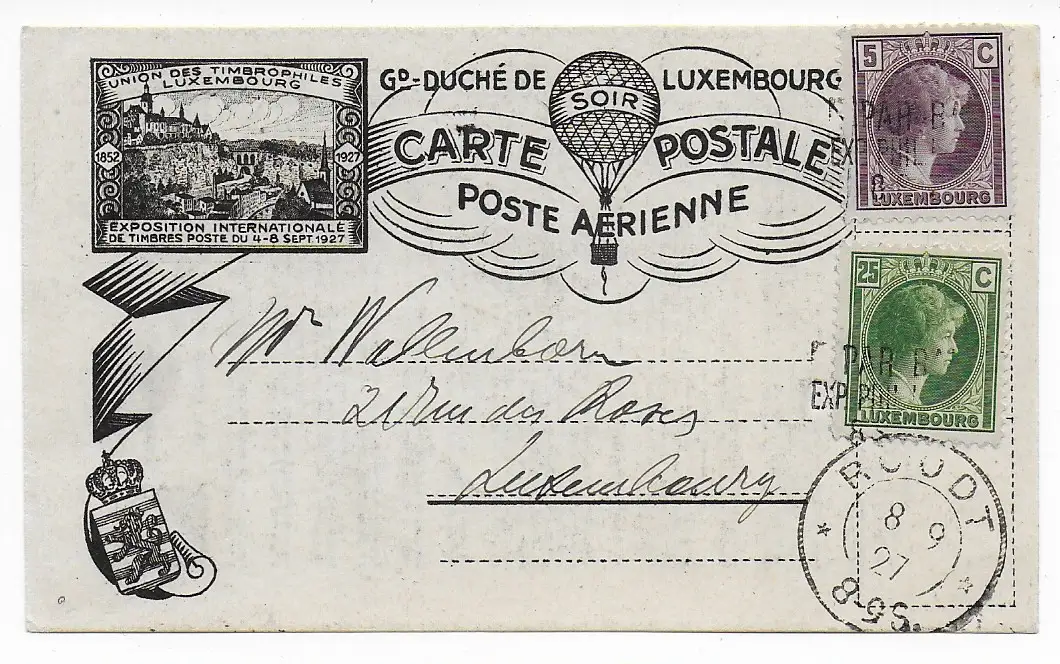 UNION DES TIMBROPHILES
LUXEMBOURG
1852 1927
EXPOSITION INTERNATIONALE
DE TIMBRES POSTE DU 4-8 SEPT. 1927
Gᴰ-DUCHÉ DE LUXEMBOURG
SOIR
CARTE POSTALE
POSTE AÉRIENNE
5 C
PAR BA
EXP PHIL
LUXEMBOURG
25 C
PAR BA
EXP PHIL
LUXEMBOURG
Mr Wallenborn
21 rue des Roses
Luxembourg
ROODT
8 9
27
8-9S.